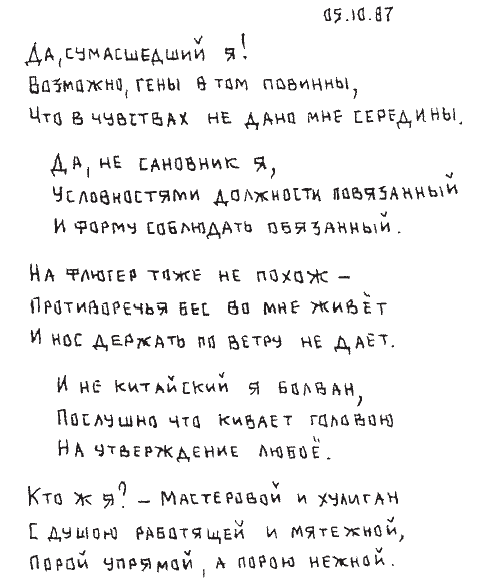 05.10.87
Да, сумасшедший я!
Возможно, гены в том повинны,
Что в чувствах не дано мне середины.
Да, не сановник я,
Условностями должности повязанный
И форму соблюдать обязанный.
На флюгер тоже не похож –
Противоречья бес во мне живёт
И нос держать по ветру не даёт.
И не китайский я болван,
Послушно что кивает головою
На утверждение любоё.
Кто ж я? – Мастеровой и хулиган
С душою работящей и мятежной,
Порой упрямой, а порою нежной.